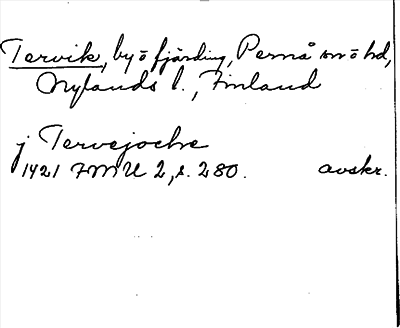 Tervik, by o fjärding, Pernå sn o hd,
Nylands l., Finland
j Tervejoche
1421 FMU 2, s. 280. avskr.